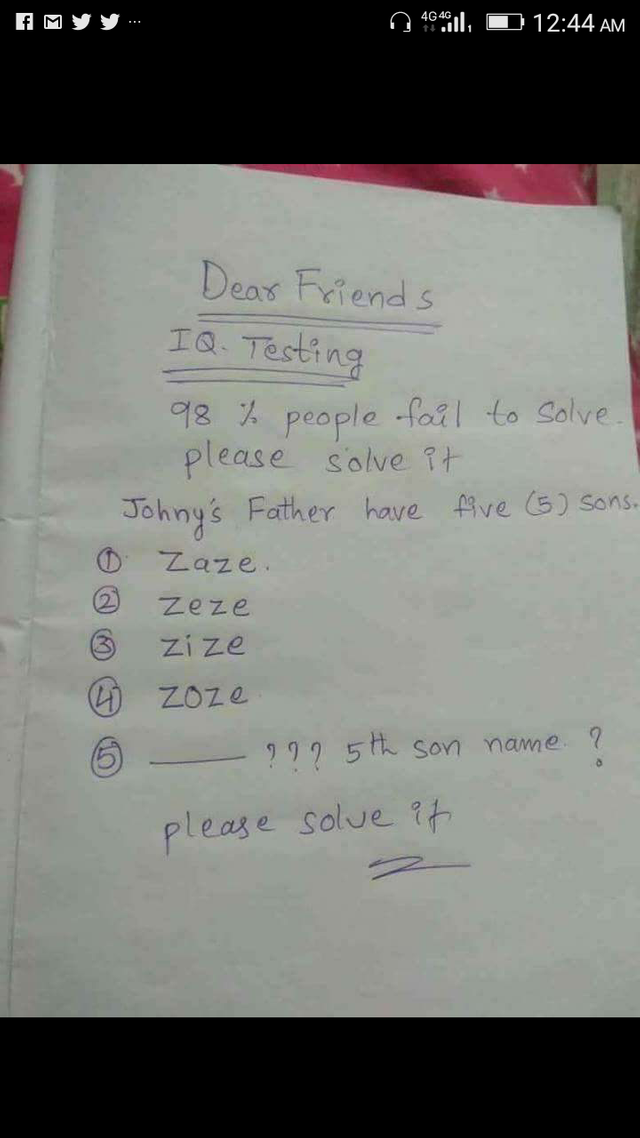 4G 4G 12:44 AM
Dear Friends
IQ. Testing
98 % people fail to solve.
please solve it
Johny's Father have five (5) sons.
① Zaze.
② Zeze
③ Zize
④ Zoze
⑤ ____ ??? 5th son name. ?
please solve it